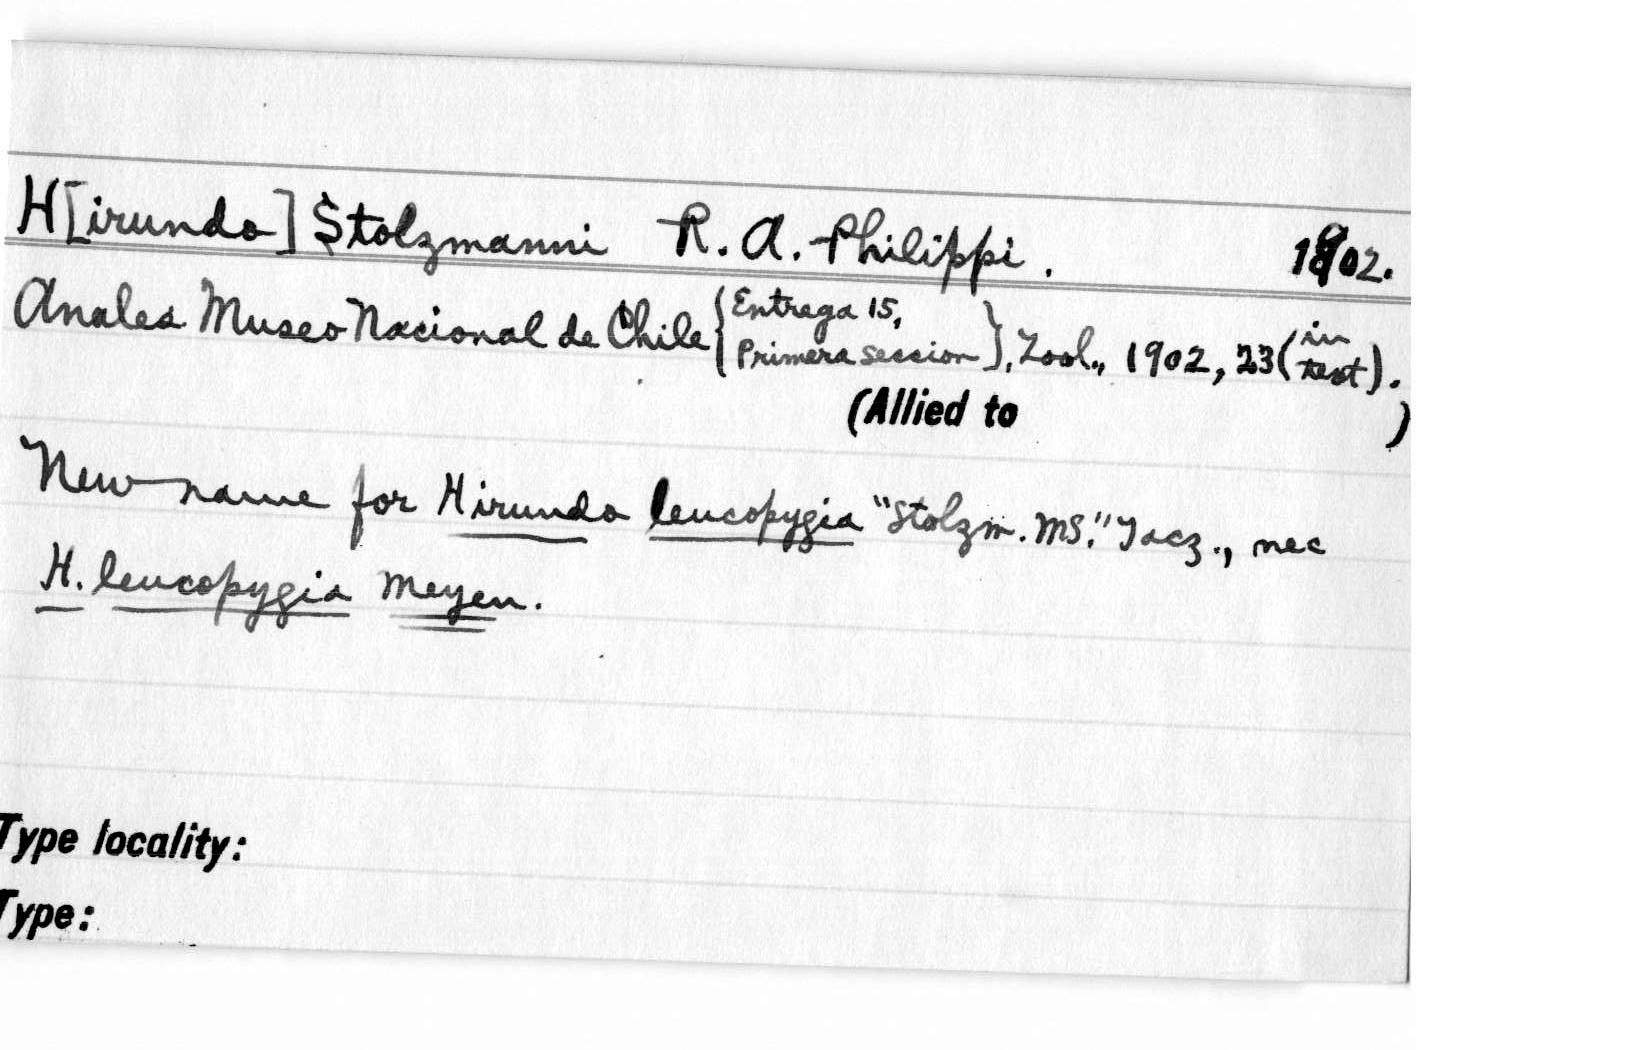 H[irundo] Stolzmanni R. A. Philippi. 1902.
Anales Museo Nacional de Chile {Entrega 15, Primera seccion}, Zool., 1902, 23 (in text).
(Allied to )
New name for Hirundo leucopygia "Stolzm. MS." Tacz., nec
H. leucopygia Meyen.
Type locality:
Type: